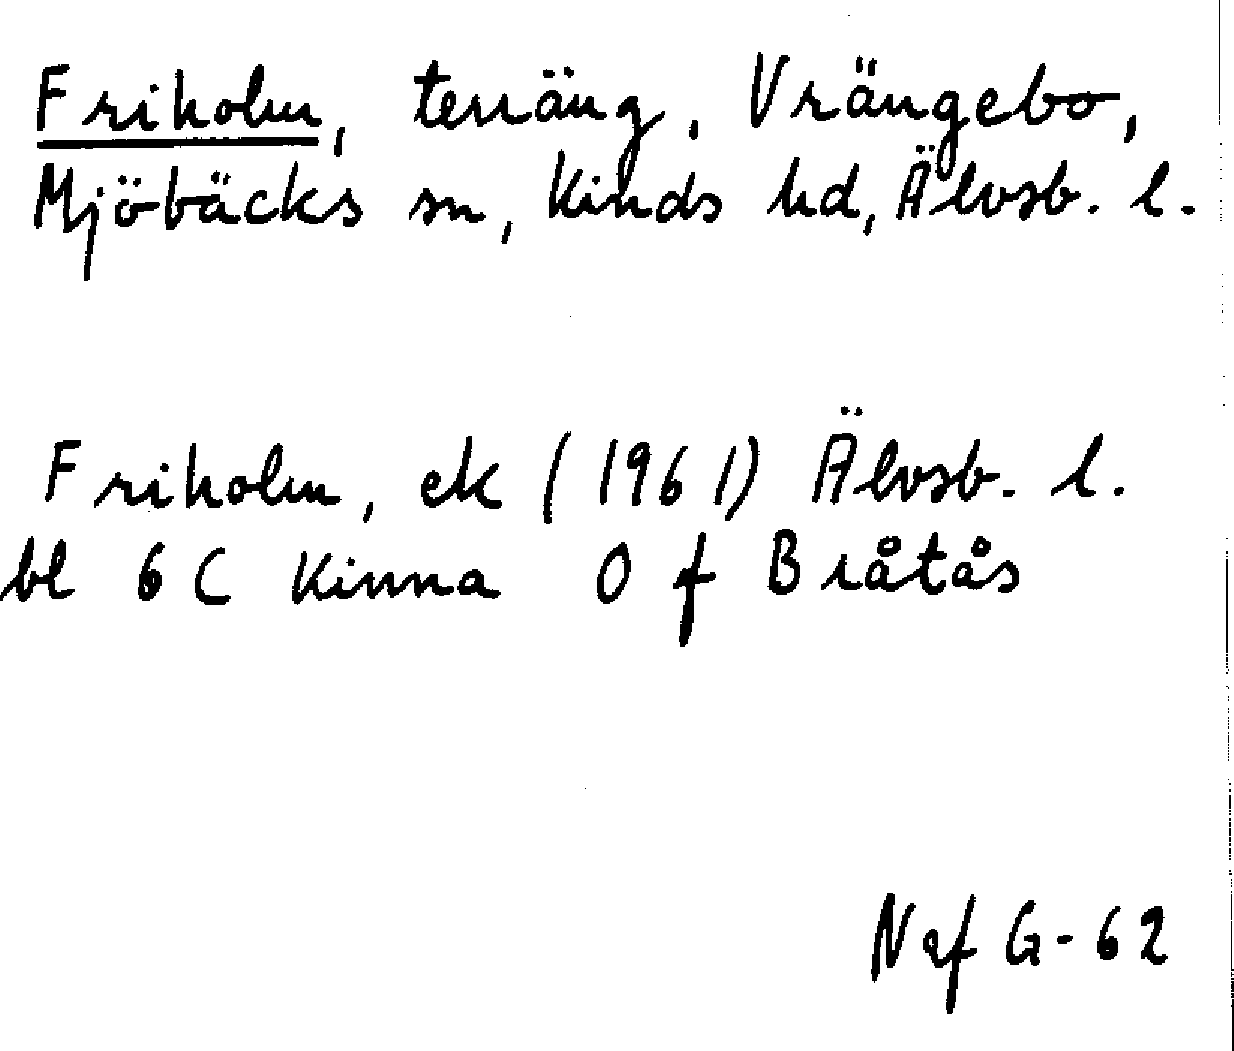 Friholm, terräng, Vrängebo,
Mjöbäcks sn, Kinds hd, Älvsb. l.
Friholm, ek (1961) Älvsb. l.
bl 6 C Kinna O f Bråtås
Naf G-62